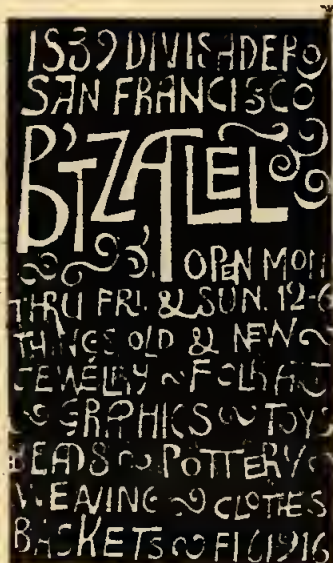 1539 DIVISADERO
SAN FRANCISCO
B'TZALEL
OPEN MON
THRU FRI. & SUN. 12-6
THINGS OLD & NEW
JEWELRY ~ FOLK ART
~ GRAPHICS ~ TOYS
BEADS ~ POTTERY ~
WEAVING ~ CLOTHES
BASKETS ~ FI61916